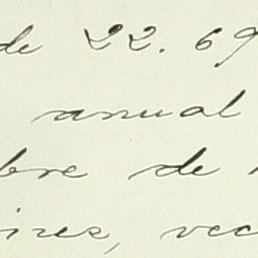 de 22.69
anual
bre de
ires, vec